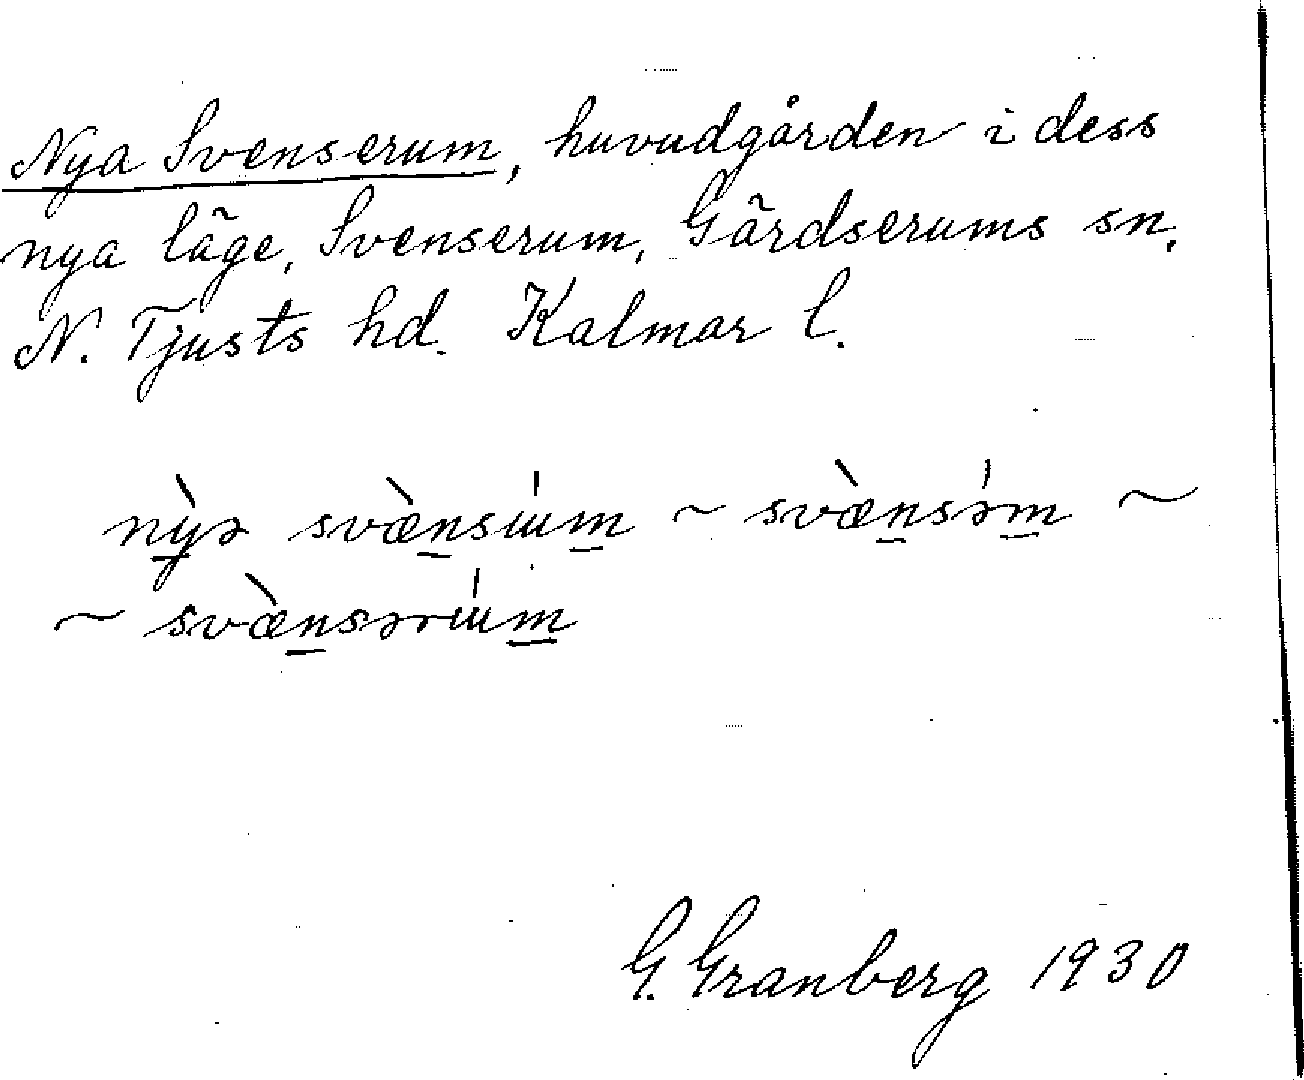 Nya Svenserum, huvudgården i dess
nya läge, Svenserum, Gärdserums sn,
N. Tjusts hd. Kalmar l.
nỳə svæ̀nsɯ́m ~ svæ̀nsə́m ~
~ svæ̀nsərɯ́m
G. Granberg 1930